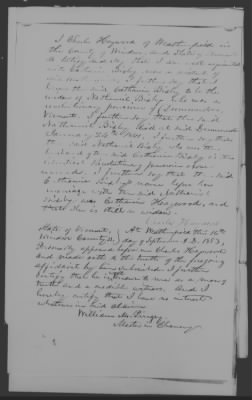 I Charles Haywood of Weathersfield in
the County of Windsor, and State of Vermont
do testify and say that I am well acquainted
with Catharine Bixby, now a resident of
said
the said Catharine Bixby to be the
widow of Nathaniel Bixby who was a
revolutionary pensioner of
Vermont. I further say that the said
Nathaniel Bixby died at said
January 24
the said Nathaniel Bixby who was the
husband of the said Catharine Bixby is the
identical Revolutionary pensioner before
named. I further say that the said
Catharine Bixby's name before her
marriage with the said Nathaniel
Bixby, was Catharine Haywood, and
that she is still a widow.
Charles Haywood
State of Vermont, At Weathersfield this 16th
Windsor County, ss. day of September A.D. 1853,
Personally appeared before me Charles Haywood
and made oath to the truth of the foregoing
affidavit by him subscribed. I further
certify that he is known to me as a man of
truth and a credible witness. And I
hereby certify that I have no interest
whatever in said claim
William M.
Master in Chancery